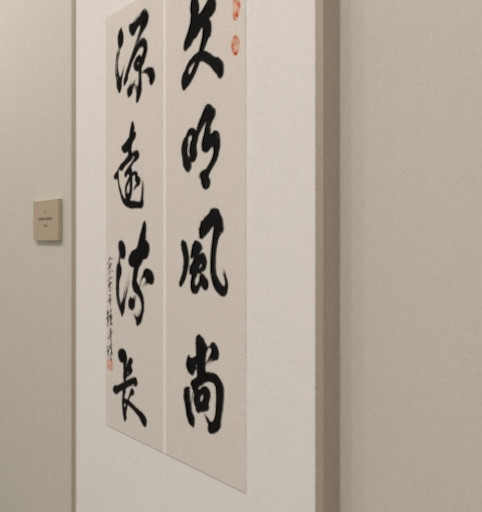 文明風尚
源遠流長